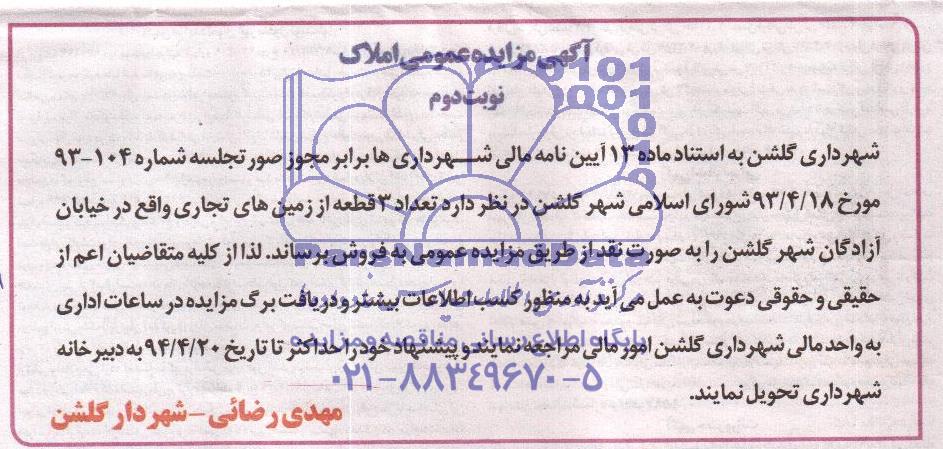 آگهی مزایده عمومی املاک
نوبت دوم
شهرداری گلشن به استناد ماده ۱۳ آیین نامه مالی شهرداری ها برابر مجوز صورتجلسه شماره ۱۰۴-۹۳
مورخ ۹۳/۴/۱۸ شورای اسلامی شهر گلشن در نظر دارد تعداد ۳ قطعه از زمین های تجاری واقع در خیابان
آزادگان شهر گلشن را به صورت نقد از طریق مزایده عمومی به فروش برساند. لذا از کلیه متقاضیان اعم از
حقیقی و حقوقی دعوت به عمل می آید به منظور کسب اطلاعات بیشتر و دریافت برگ مزایده در ساعات اداری
به واحد مالی شهرداری گلشن امور مالی مراجعه نمایند و پیشنهاد خود را حداکثر تا تاریخ ۹۴/۴/۲۰ به دبیرخانه
شهرداری تحویل نمایند.
مهدی رضائی - شهردار گلشن
پایگاه اطلاع رسانی مناقصه و مزایده
۰۲۱-۸۸۳۴۹۶۷۰-۵